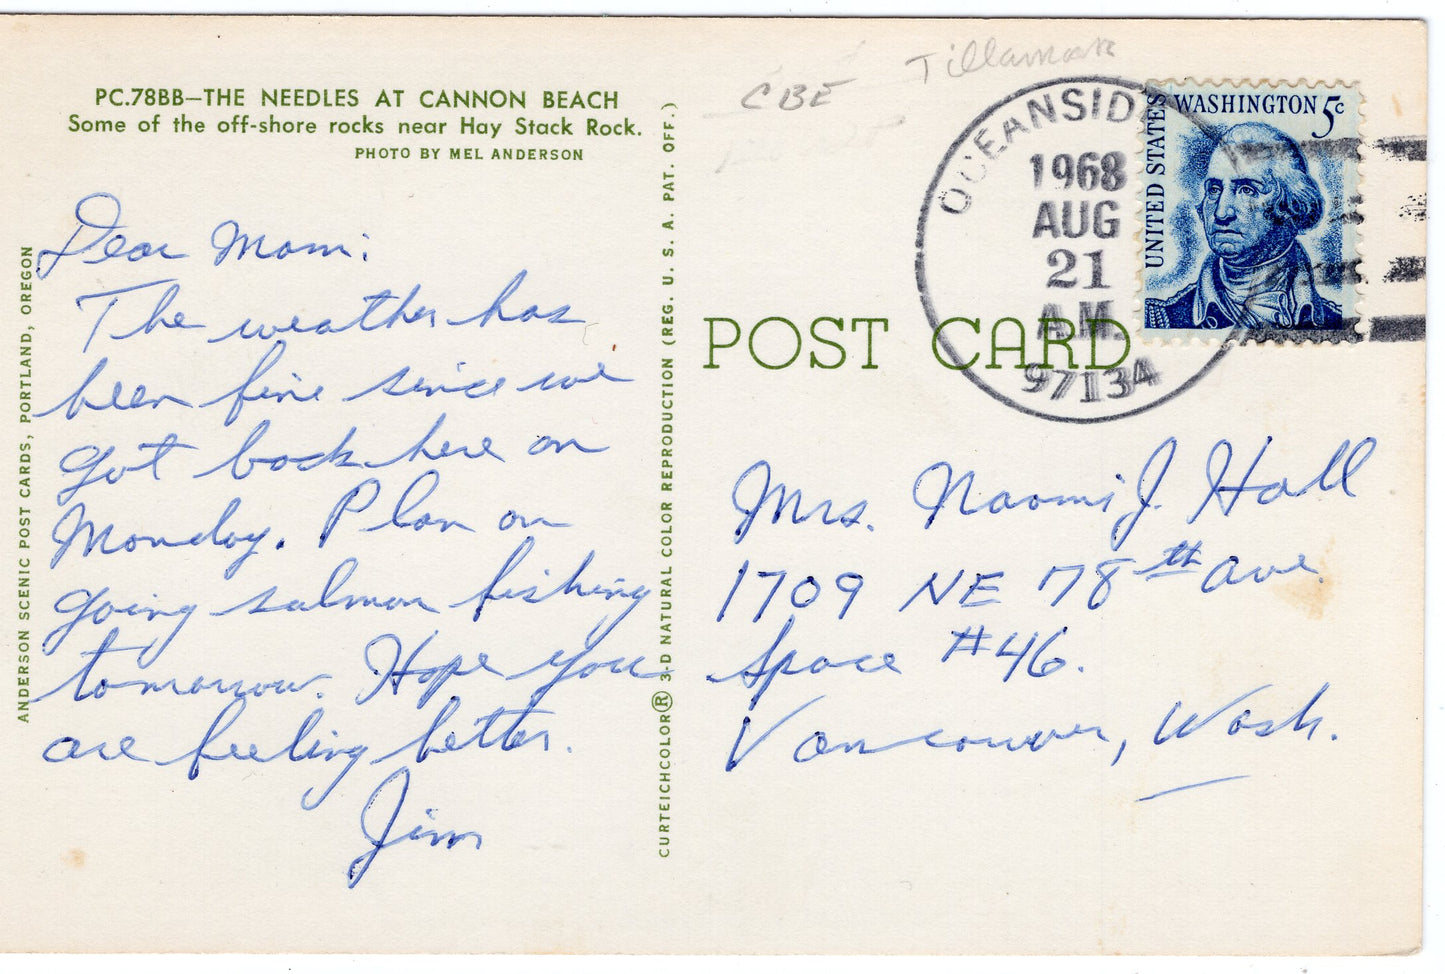 PC.78BB—THE NEEDLES AT CANNON BEACH
Some of the off-shore rocks near Hay Stack Rock.
PHOTO BY MEL ANDERSON
ANDERSON SCENIC POST CARDS, PORTLAND, OREGON
Dear Mom:
The weather has
been fine since we
got back here on
Monday. Plan on
going salmon fishing
tomorrow. Hope you
are feeling better.
Jim
CURTEICHCOLOR® 3-D NATURAL COLOR REPRODUCTION (REG. U. S. A. PAT. OFF.)
CBE
Tillamook
OCEANSIDE
1968
AUG
21
A.M.
97134
UNITED STATES
WASHINGTON 5c
POST CARD
Mrs. Naomi J. Hall
1709 NE 78th Ave.
Space #46.
Vancouver, Wash.